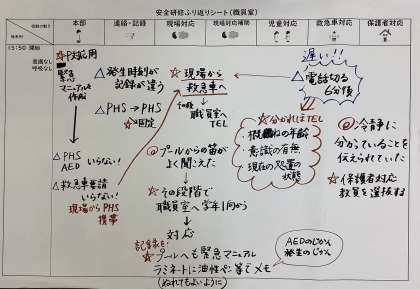 安全研修ふり返りシート（職員室）
本部
連絡・記録
現場対応
現場対応補助
児童対応
救急車対応
保護者対応
13:50 開始
意識なし
呼吸なし
☆P対応用
緊急
マニュアルを
作成
△PHS
AED いらない！
△救急車要請
いらない！
現場からPHS
携帯
△発生時刻が
記録が違う
△PHS→PHS
☆固定
☆現場から
救急車へ
その後
職員室へ
TEL
@プールからの笛が
よく聞こえた
☆その段階で
職員室へ学年1向から
対応
記録を
☆プールへも緊急マニュアル
ラミネートに油性ペン等でメモ
(ぬれてもよいように)
遅い!!
△電話切る
6分後
☆分かればTEL
・概ねの年齢
・意識の有無
・現在の処置の
状態
@冷静に
分かっていることを
伝えられていた
☆保護者対応
教員を選抜する
AEDのじかん
発生のじかん